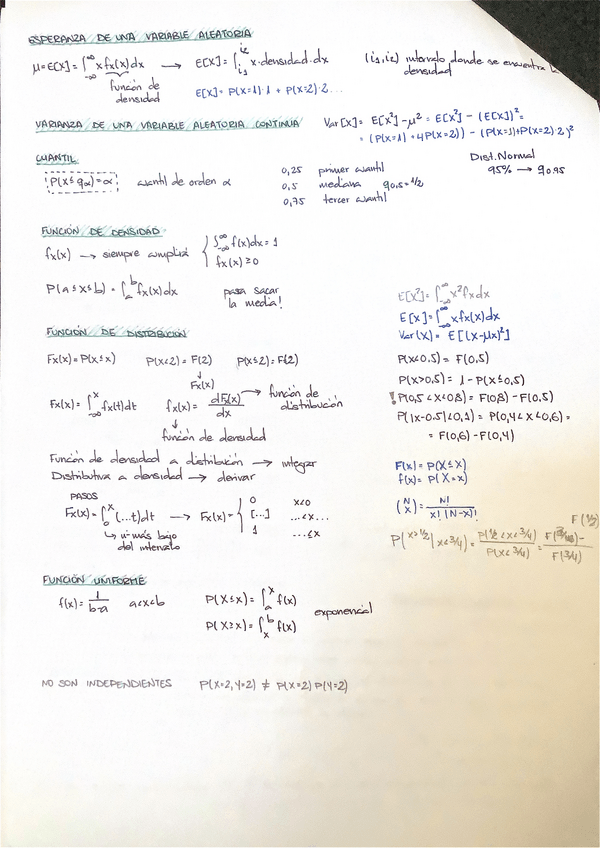 ESPERANZA DE UNA VARIABLE ALEATORIA
μ=E[X]=∫_{-∞}^{∞} x fx(x)dx → E[X]=∫_{i1}^{i2} x·densidad·dx (i1,i2) intervalo donde se encuentra la
función de densidad
densidad
E[X]= P(X=1)·1 + P(X=2)·2...
VARIANZA DE UNA VARIABLE ALEATORIA CONTINUA Var[X]= E[X²]-μ² = E[X²] - (E[X])² =
= (P(X=1) + 4P(X=2)) - (P(X=1)+P(X=2)·2)²
CUANTIL
P(X≤qα)=α cuantil de orden α
0,25 primer cuantil
0,5 mediana q0,5=1/2
0,75 tercer cuantil
Dist. Normal
95% → q0.95
FUNCIÓN DE DENSIDAD
fx(x) → siempre cumplirá { ∫_{-∞}^{∞} f(x)dx=1
fx(x)≥0
P(a≤x≤b)=∫_a^b fx(x)dx para sacar
la media!
E[X²]=∫_{-∞}^{∞} x² fx dx
E[X]=∫_{-∞}^{∞} x fx(x)dx
Var(X)= E[(X-μx)²]
FUNCIÓN DE DISTRIBUCIÓN
Fx(x)=P(X≤x) P(X<2)=F(2) P(X≤2)=F(2)
↓
Fx(x)
Fx(x)=∫_{-∞}^{x} fx(t)dt fx(x)= dFx(x)/dx → función de
distribución
↓
función de densidad
P(X<0,5) = F(0,5)
P(X>0,5) = 1 - P(X≤0,5)
! P(0,5<X<0,8) = F(0,8) - F(0,5)
P(|X-0.5|<0,1) = P(0,4<X<0,6) =
= F(0,6) - F(0,4)
Función de densidad a distribución → integrar
Distributiva a densidad → derivar
PASOS
Fx(x)=∫_0^x (...t)dt → Fx(x)= { 0 x<0
[...] ...<x...
1 ...≤x
↳ nº más bajo
del intervalo
F(x)= P(X≤x)
f(x)= P(X=x)
(N x) = N!/x!(N-x)!
P(x>1/2 | x<3/4) = P(1/2<x<3/4)/P(x<3/4) = F(3/4)-F(1/2)/F(3/4)
FUNCIÓN UNIFORME
f(x)= 1/b-a a<x<b P(X≤x)=∫_a^x f(x)
P(X≥x)=∫_x^b f(x) exponencial
NO SON INDEPENDIENTES P(X=2,Y=2) ≠ P(X=2)P(Y=2)